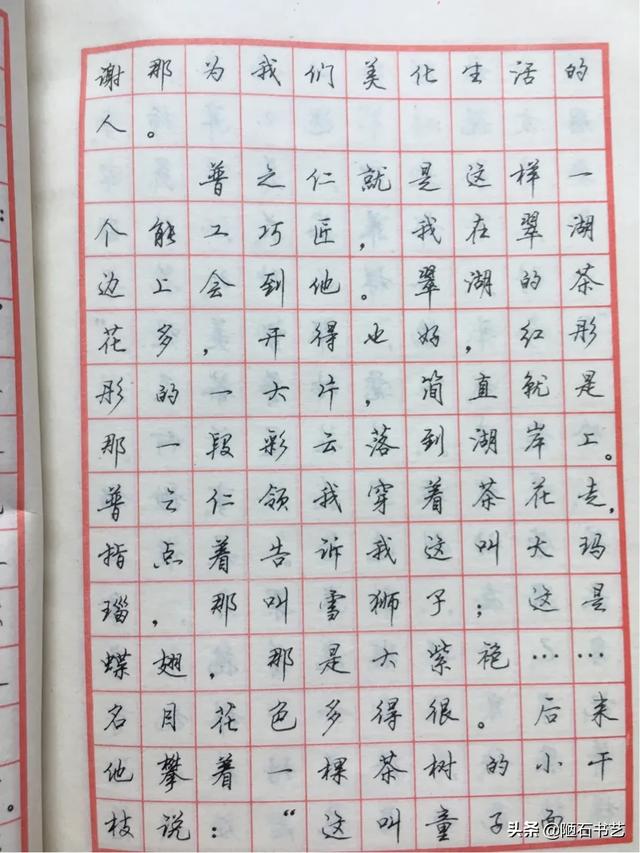 谢那为我们美化生活的
人。
普之仁就是这样一
个能工巧匠，我在翠湖
边上会到他。翠湖的茶
花多，开得也好，红彤
彤的一大片，简直就是
那一段彩云落到湖岸上。
普之仁领我穿着茶花走，
指点着告诉我这叫大玛
瑙，那叫雪狮子；这是
蝶翅，那是大紫袍……
名目花色多得很。后来
他攀着一棵茶树的小干
枝说：“这叫童子面
头条 @陋石书艺